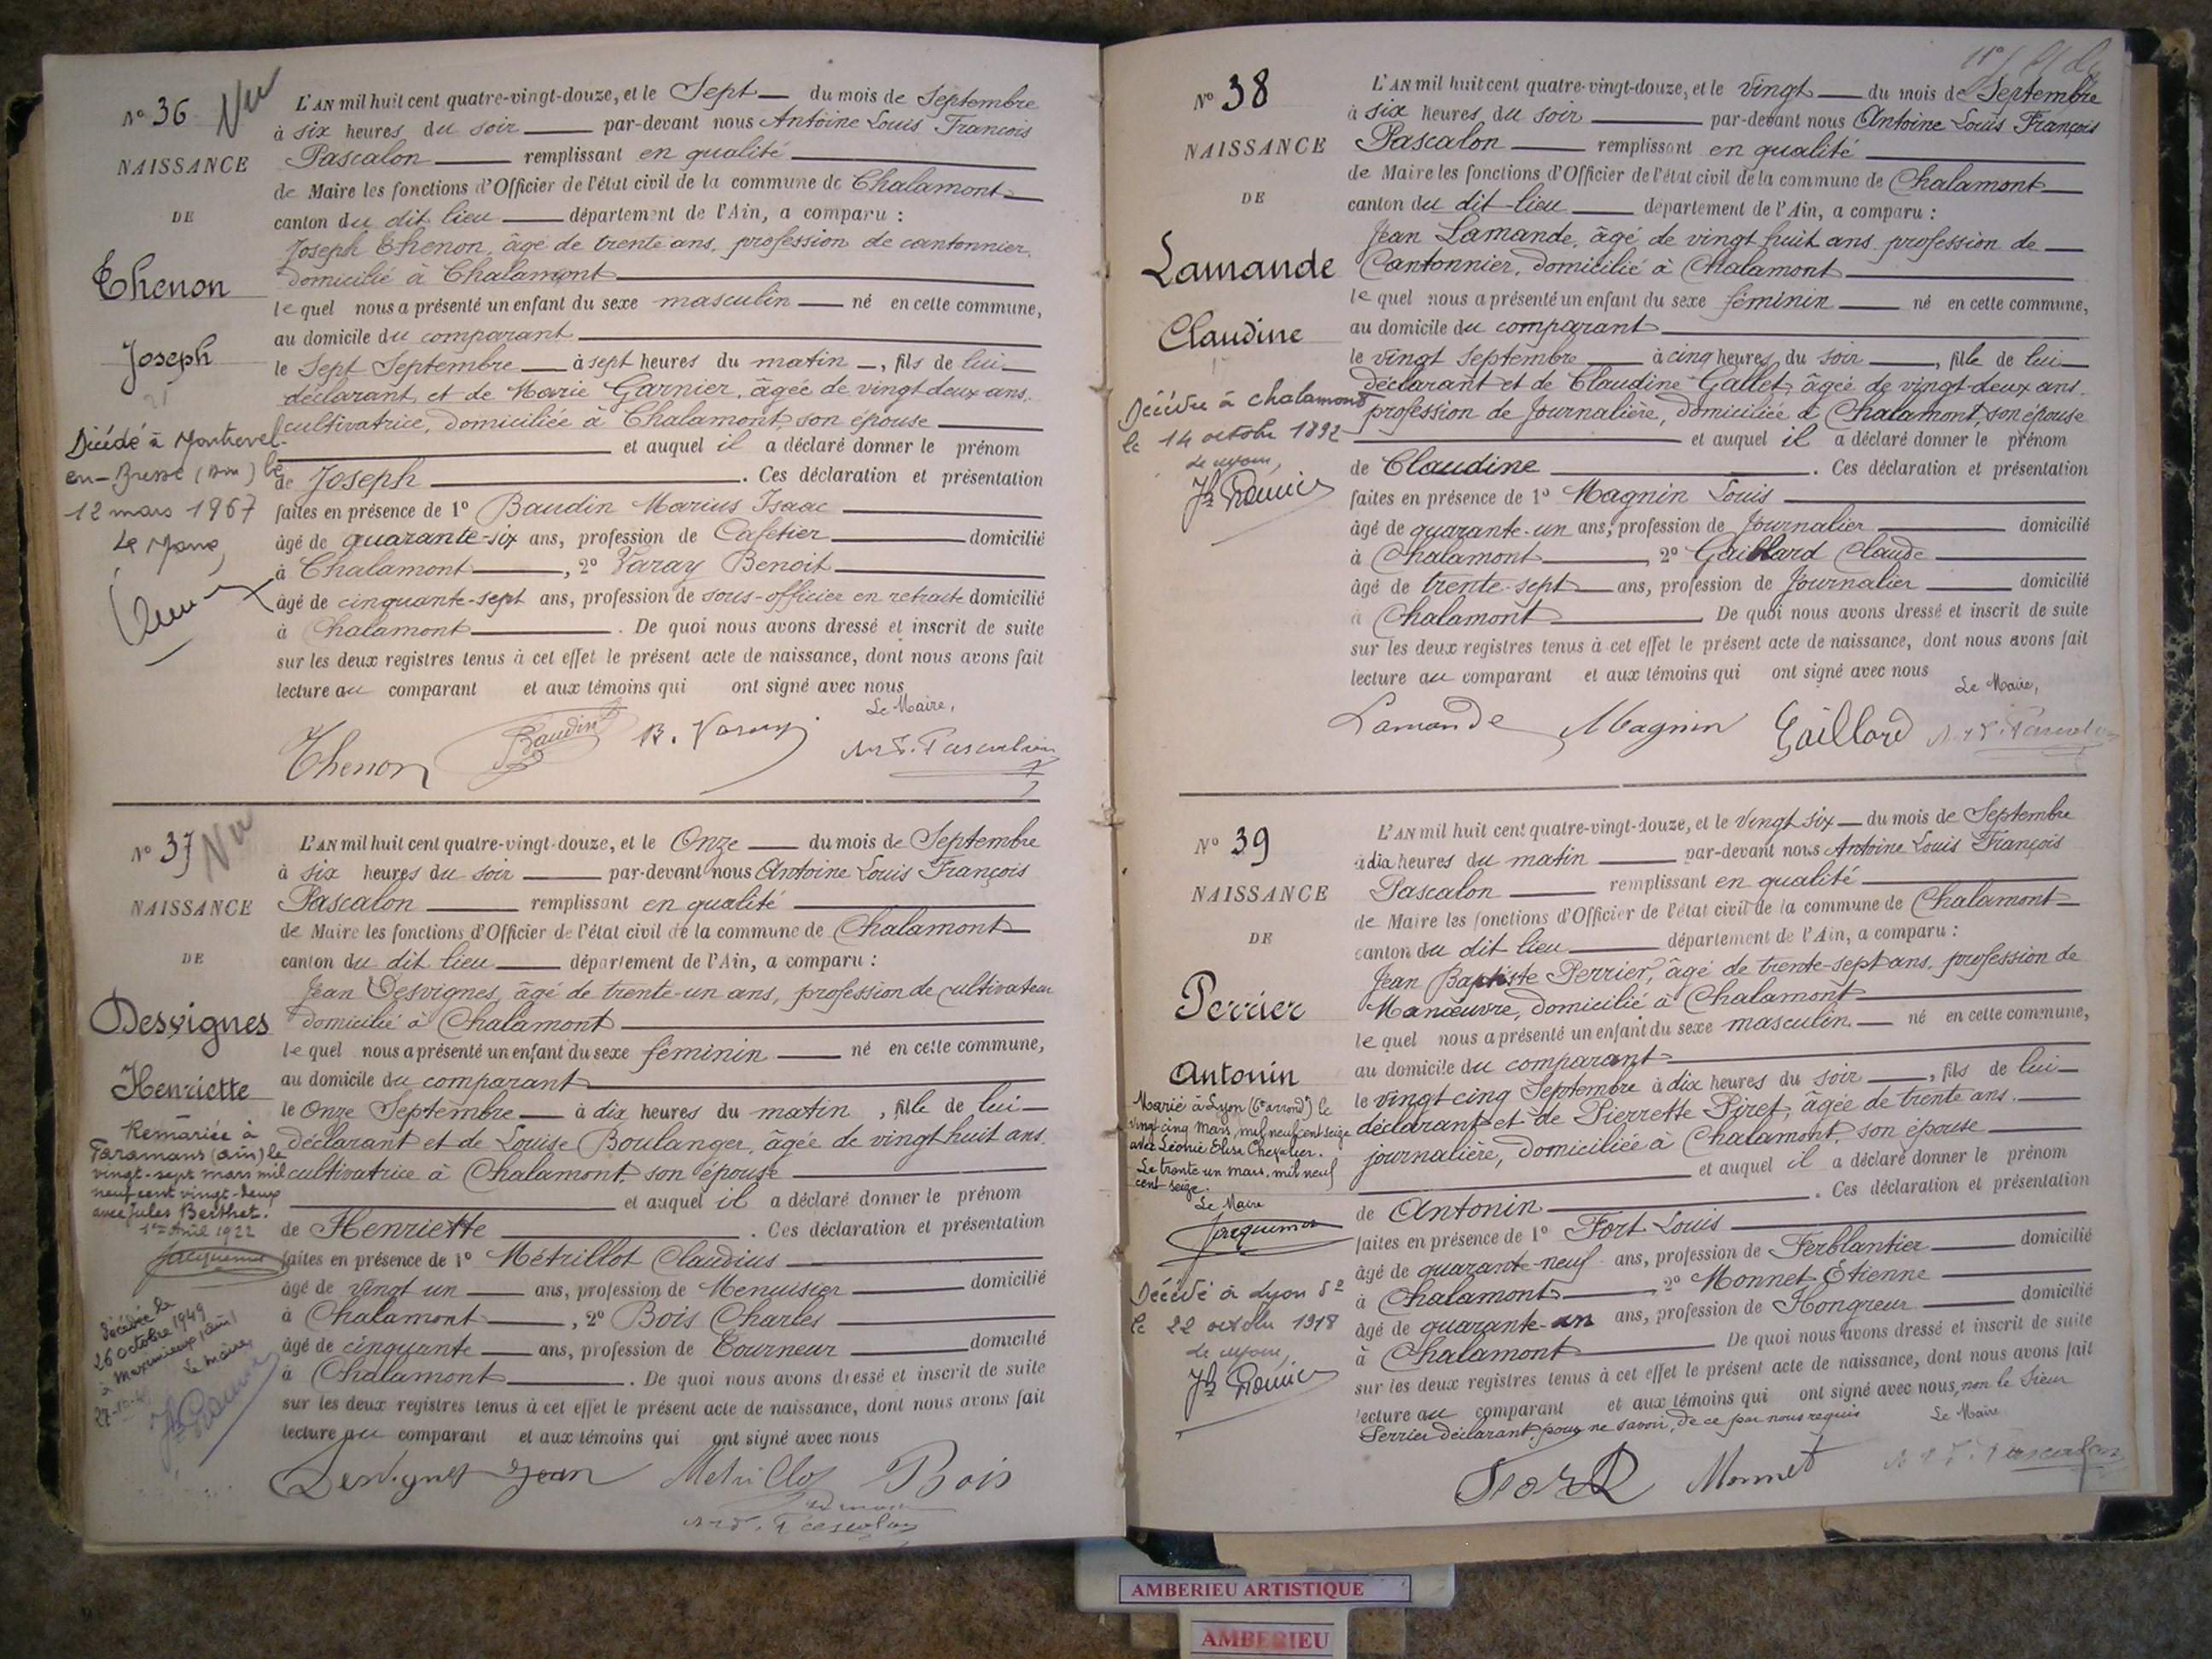 N° 36
NAISSANCE
DE
Thenon
Joseph
Décédé à Montrevel-
en-Bresse (Ain) le
12 mars 1967
Le Maire,
L'AN mil huit cent quatre-vingt-douze, et le Sept du mois de Septembre
à six heures du soir par-devant nous Antoine Louis François
Pascalon remplissant en qualité
de Maire les fonctions d'Officier de l'état civil de la commune de Chalamont
canton du dit lieu département de l'Ain, a comparu :
Joseph Thenon, âgé de trente ans, profession de cantonnier,
domicilié à Chalamont
lequel nous a présenté un enfant du sexe masculin né en cette commune,
au domicile du comparant
le Sept Septembre à sept heures du matin, fils de lui
déclarant et de Marie Garnier, âgée de vingt deux ans,
cultivatrice, domiciliée à Chalamont, son épouse
et auquel il a déclaré donner le prénom
de Joseph. Ces déclaration et présentation
faites en présence de 1° Baudin Marius Isaac
âgé de quarante-six ans, profession de Cafetier domicilié
à Chalamont, 2° Varay Benoit
âgé de cinquante-sept ans, profession de sous-officier en retraite domicilié
à Chalamont. De quoi nous avons dressé et inscrit de suite
sur les deux registres tenus à cet effet le présent acte de naissance, dont nous avons fait
lecture au comparant et aux témoins qui ont signé avec nous
Le Maire,
Thenon Baudin B. Varay Pascalon
N° 37
NAISSANCE
DE
Desvignes
Henriette
Remariée à
Faramans (ain) le
vingt-sept mars mil
neuf cent vingt-deux
avec Jules Berthet.
1er Avril 1922
Jacquemet
Décédée le
26 octobre 1949
à Meximieux (ain)
Le maire
L'AN mil huit cent quatre-vingt-douze, et le Onze du mois de Septembre
à six heures du soir par-devant nous Antoine Louis François
Pascalon remplissant en qualité
de Maire les fonctions d'Officier de l'état civil de la commune de Chalamont
canton du dit lieu département de l'Ain, a comparu :
Jean Desvignes, âgé de trente-un ans, profession de cultivateur
domicilié à Chalamont
lequel nous a présenté un enfant du sexe féminin né en cette commune,
au domicile du comparant
le Onze Septembre à dix heures du matin, fille de lui
déclarant et de Louise Boulanger, âgée de vingt huit ans.
cultivatrice à Chalamont, son épouse
et auquel il a déclaré donner le prénom
de Henriette. Ces déclaration et présentation
faites en présence de 1° Métrillot Claudius
âgé de vingt un ans, profession de Menuisier domicilié
à Chalamont, 2° Bois Charles
âgé de cinquante ans, profession de Tourneur domicilié
à Chalamont. De quoi nous avons dressé et inscrit de suite
sur les deux registres tenus à cet effet le présent acte de naissance, dont nous avons fait
lecture au comparant et aux témoins qui ont signé avec nous
Desvignes Jean Métrillot Bois
Pascalon
N° 38
NAISSANCE
DE
Lamande
Claudine
Décédée à Chalamont
le 14 octobre 1892
L'AN mil huit cent quatre-vingt-douze, et le vingt du mois de Septembre
à six heures du soir par-devant nous Antoine Louis François
Pascalon remplissant en qualité
de Maire les fonctions d'Officier de l'état civil de la commune de Chalamont
canton du dit-lieu département de l'Ain, a comparu :
Jean Lamande, âgé de vingt huit ans profession de
Cantonnier, domicilié à Chalamont
lequel nous a présenté un enfant du sexe féminin né en cette commune,
au domicile du comparant
le vingt Septembre à cinq heures du soir, fille de lui
déclarant et de Claudine Gallet, âgée de vingt-deux ans.
profession de Journalière, domiciliée à Chalamont, son épouse
et auquel il a déclaré donner le prénom
de Claudine. Ces déclaration et présentation
faites en présence de 1° Magnin Louis
âgé de quarante-un ans, profession de Journalier domicilié
à Chalamont, 2° Gaillard Claude
âgé de trente-sept ans, profession de Journalier domicilié
à Chalamont. De quoi nous avons dressé et inscrit de suite
sur les deux registres tenus à cet effet le présent acte de naissance, dont nous avons fait
lecture au comparant et aux témoins qui ont signé avec nous
Le Maire,
Lamande Magnin Gaillard Pascalon
N° 39
NAISSANCE
DE
Perrier
Antonin
Marié à Lyon (6e arrondt) le
vingt cinq Mars, mil neuf cent seize
avec Léonie Elisa Chevalier.
Le trente un mars, mil neuf
cent seize.
Le Maire
Jacquemet
Décédé à Lyon 5e
le 22 octobre 1918
L'AN mil huit cent quatre-vingt-douze, et le Vingt six du mois de Septembre
à dix heures du matin par-devant nous Antoine Louis François
Pascalon remplissant en qualité
de Maire les fonctions d'Officier de l'état civil de la commune de Chalamont
canton du dit lieu département de l'Ain, a comparu :
Jean Baptiste Perrier, âgé de trente-sept ans, profession de
Manœuvre, domicilié à Chalamont
lequel nous a présenté un enfant du sexe masculin né en cette commune,
au domicile du comparant
le vingt cinq Septembre à dix heures du soir, fils de lui
déclarant et de Pierrette Piret, âgée de trente ans.
journalière, domiciliée à Chalamont, son épouse
et auquel il a déclaré donner le prénom
de Antonin. Ces déclaration et présentation
faites en présence de 1° Fort Louis
âgé de quarante-neuf ans, profession de Ferblantier domicilié
à Chalamont, 2° Monnet Étienne
âgé de quarante-un ans, profession de Hongreur domicilié
à Chalamont. De quoi nous avons dressé et inscrit de suite
sur les deux registres tenus à cet effet le présent acte de naissance, dont nous avons fait
lecture au comparant et aux témoins qui ont signé avec nous, non le Sieur
Perrier déclarant, pour ne savoir, de ce par nous requis
Le Maire
Fort Monnet Pascalon
AMBERIEU ARTISTIQUE
AMBERIEU